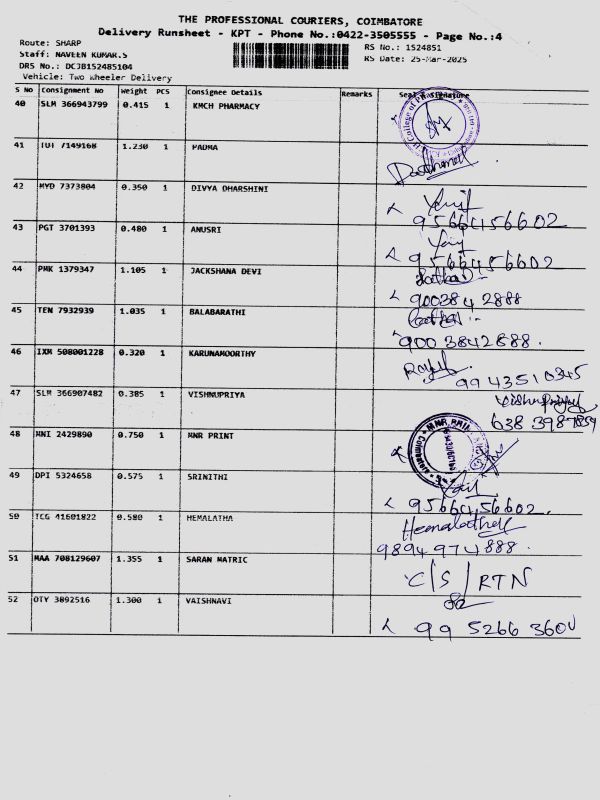 THE PROFESSIONAL COURIERS, COIMBATORE
Delivery Runsheet - KPT - Phone No.:0422-3505555 - Page No.:4
Route: SHARP
RS No.: 1524851
Staff: NAVEEN KUMAR.S
RS Date: 25-Mar-2025
DRS No.: DCJB152485104
Vehicle: Two Wheeler Delivery
S No Consignment No Weight PCS Consignee Details Remarks Seal Signature
40 SLM 366943799 0.415 1 KMCH PHARMACY
41 TUT 7149168 1.230 1 PADMA
42 MYD 7373804 0.350 1 DIVYA DHARSHINI
9566456602
43 PGT 3701393 0.480 1 ANUSRI
9566456602
44 PMK 1379347 1.105 1 JACKSHANA DEVI
9003842888
45 TEN 7932939 1.035 1 BALABARATHI
9003842888.
46 IXM 508001228 0.320 1 KARUNAMOORTHY
9943510345
47 SLM 366907482 0.385 1 VISHNUPRIYA
Vishnupriya
48 MNI 2429890 0.750 1 MNR PRINT
49 DPI 5324658 0.575 1 SRINITHI
9566456602.
50 TCG 41601822 0.580 1 HEMALATHA
Hemalatha
9894974888.
51 MAA 708129607 1.355 1 SARAN MATRIC
C/S/RTN
52 OTY 3892516 1.300 1 VAISHNAVI
99 5266 3600